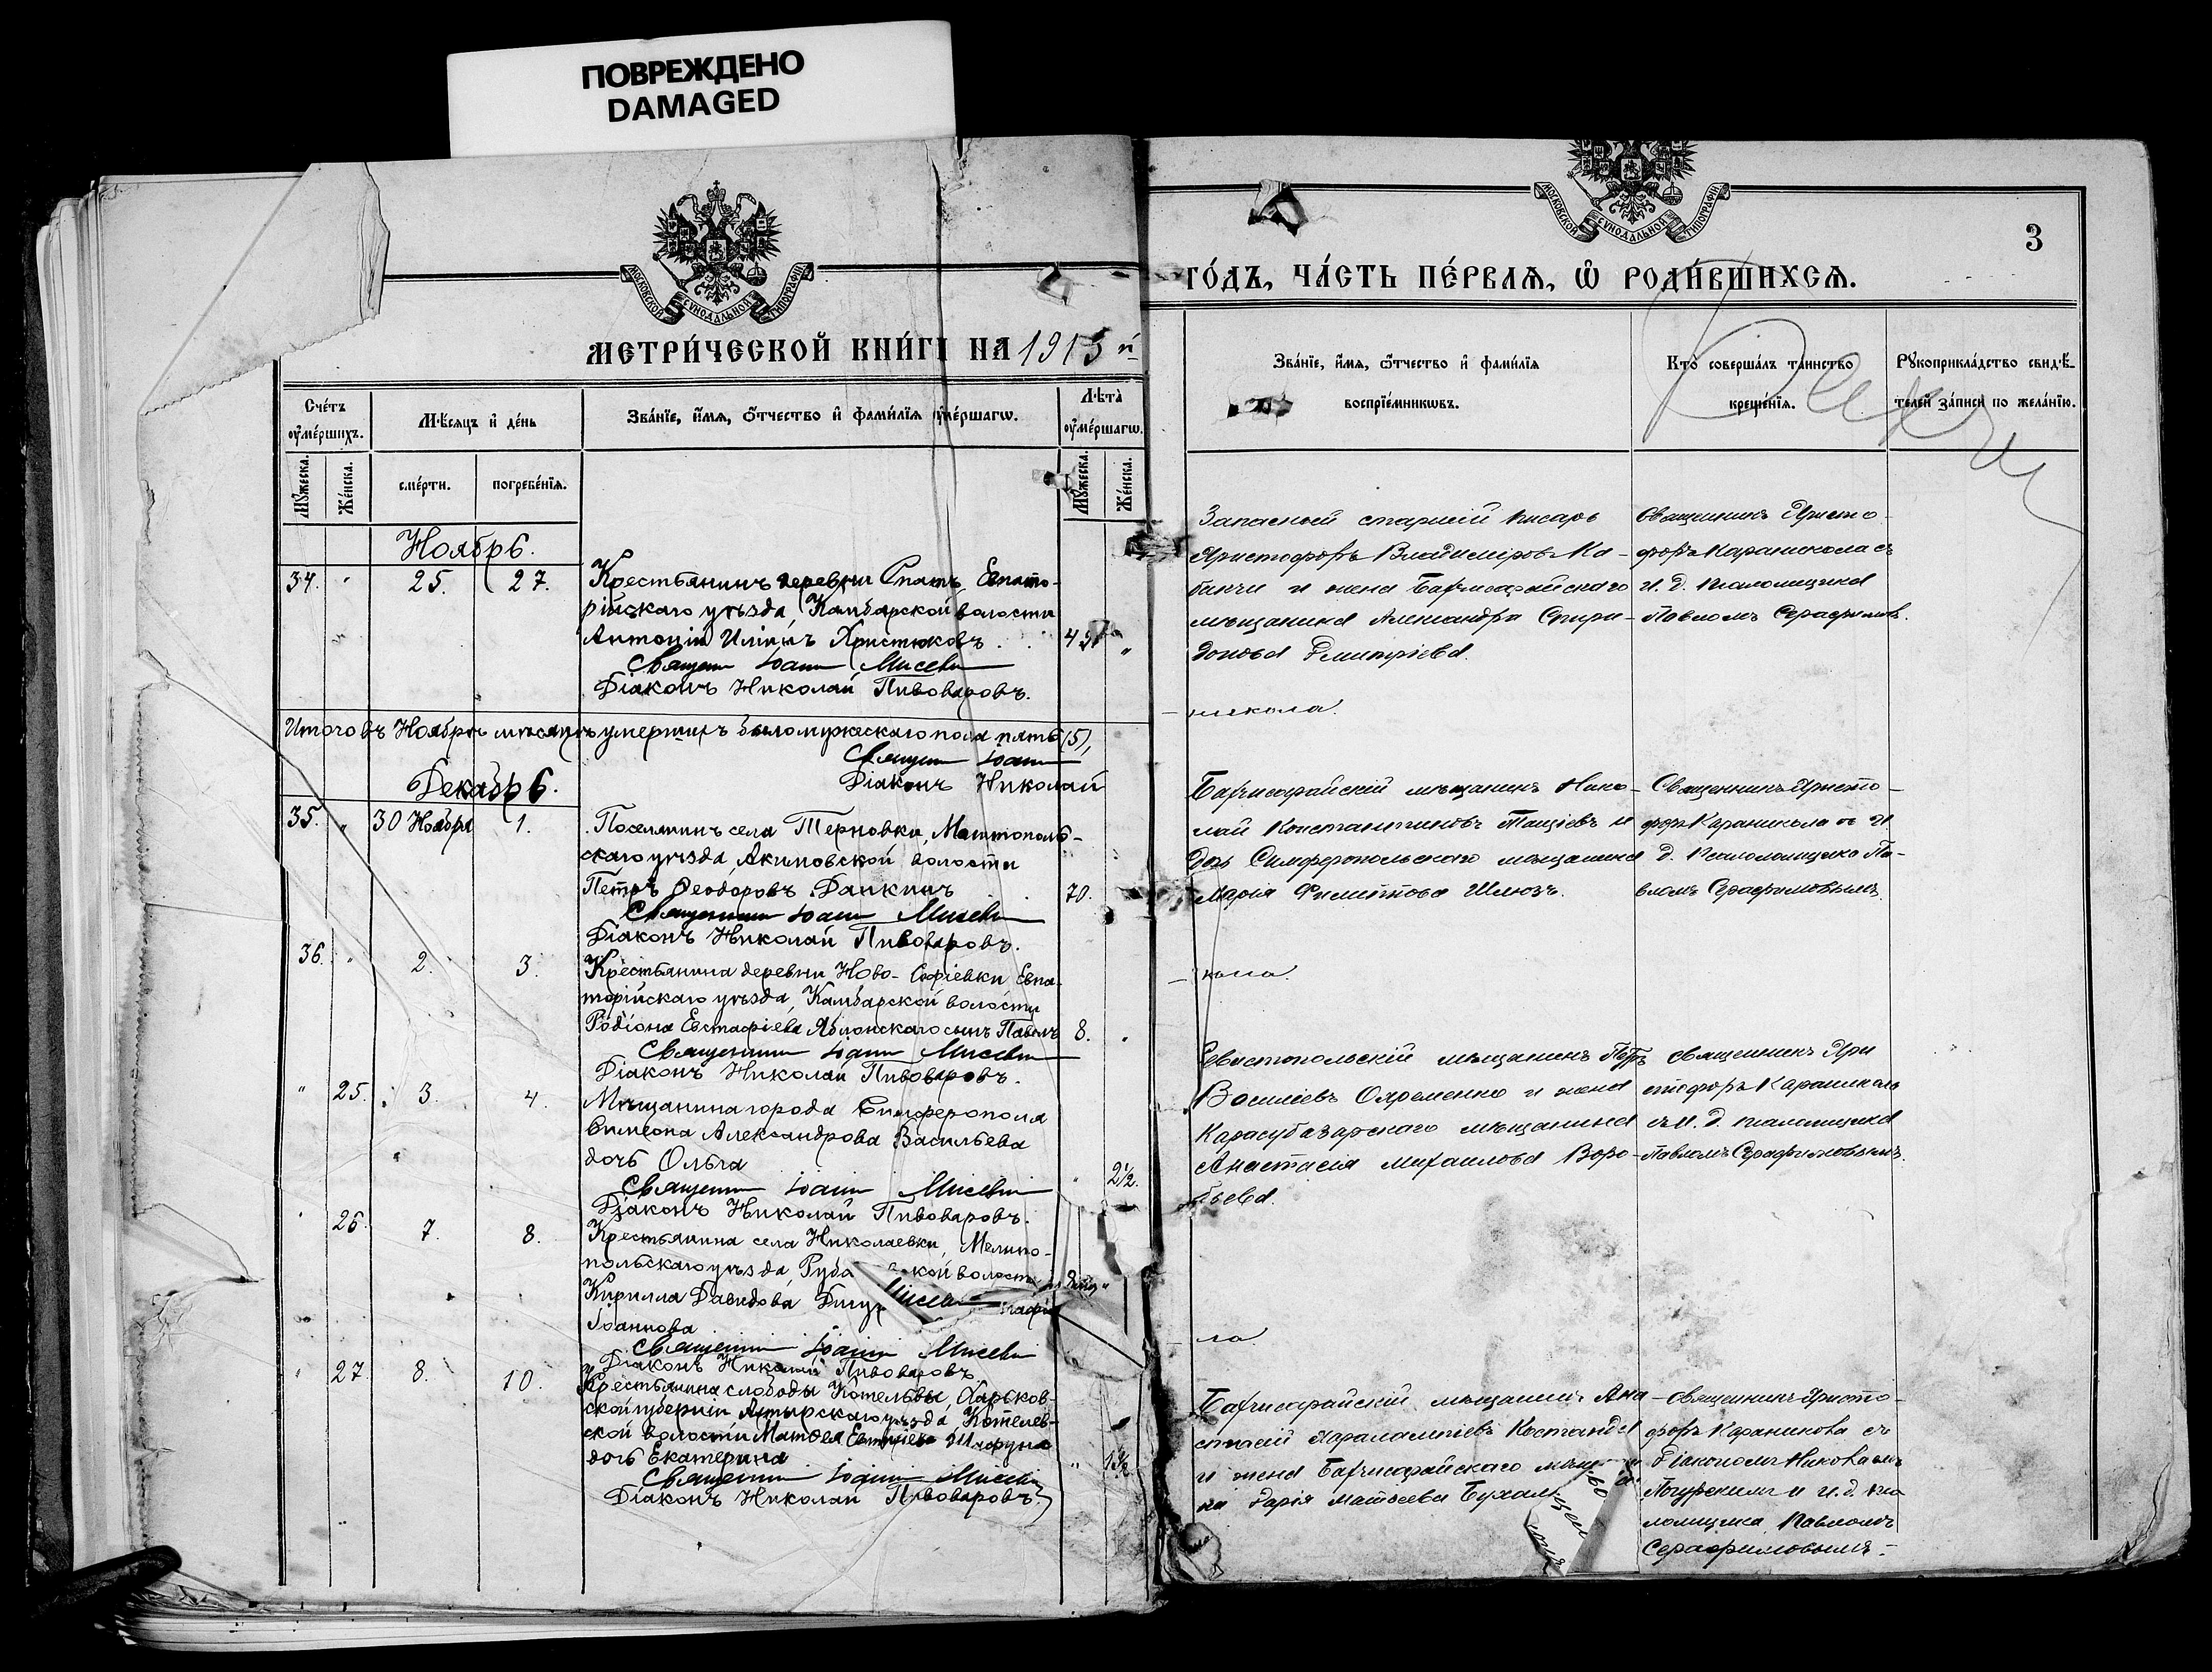 ПОВРЕЖДЕНО
DAMAGED
МОСКОВСКОЙ СѴНОДАЛЬНОЙ ТИПОГРАФІИ
МЕТРИ́ЧЕСКОЙ КНИ́ГІ НА 1913 й
Сче́тъ ᲂу҆ме́ршихъ.
Мѣ́сяцъ и҆ де́нь
Зва́нїе, и҆́мѧ, ѻ҆́тчество и҆ фами́лїѧ ᲂу҆ме́ршагѡ.
Лѣ́та ᲂу҆ме́ршагѡ.
Мꙋ́жеска.
Же́нска.
сме́рти.
погребе́нїѧ.
Мꙋ́жеска.
Же́нска.
Ноябрь.
34. " 25. 27. Крестьянинъ деревни Спатъ, Евпато-
рійскаго уѣзда, Камбарской волости
Антоній Христюковъ
Священн Іоаннъ Мисеви
Діаконъ Николай Пивоваровъ.
Итого въ Ноябрѣ мѣсяцѣ умершихъ было мужескаго пола пять (5),
Священн Іоанн
Діаконъ Николай
Декабрь.
35. " 30 Ноября 1. Поселянинъ села Терновки, Мелитополь-
скаго уѣзда, Акимовской волости
Петръ Ѳеодоровъ 70.
Священникъ Іоаннъ Мисеви
Діаконъ Николай Пивоваровъ.
36. " 2. 3. Крестьянина деревни Ново-Софіевки, Евпа-
торійскаго уѣзда, Камбарской волости
Родіона Евстафіева Яблонскаго сынъ Павелъ 8. "
Священникъ Іоаннъ Мисеви
Діаконъ Николай Пивоваровъ.
" 25. 3. 4. Мѣщанина города Симферополя
Симеона Александрова Васильева
дочь Ольга " 2½.
Священн Іоаннъ Мисеви
Діаконъ Николай Пивоваровъ.
" 26. 7. 8. Крестьянина села Николаевки, Мелито-
польскаго уѣзда, Руба ской волости
Кирилла Давидова
Іоаннова
Священникъ Іоаннъ Мисеви
Діаконъ Николай Пивоваровъ.
" 27. 8. 10. Крестьянина слободы Котельвы, Харьков-
ской губерніи Ахтырскаго уѣзда, Котелев-
ской волости Матѳея
дочь Екатерина
Священникъ Іоаннъ Мисеви
Діаконъ Николай Пивоваровъ.
МОСКОВСКОЙ СѴНОДАЛЬНОЙ ТИПОГРАФІИ
3
ГО́ДЪ, ЧА́СТЬ ПЕ́РВАѦ, Ѽ РОДИ́ВШИХСѦ.
Зва́нїе, и҆́мѧ, ѻ҆́тчество и҆ фами́лїѧ
воспрїе́мникѡвъ.
Кто̀ соверша́лъ та́инство
креще́нїѧ.
Рꙋкоприкла́дство свидѣ́-
телей за́писи по жела́нїю.
Запасный старшій писарь
Христофоръ Владиміровъ Ка-
банчи и жена Бахчисарайскаго
мѣщанина Александра Спири-
донова Дмитріева.
Священникъ Христо-
форъ Караникола съ
и. д. псаломщика
Павломъ Серафимов.
никола.
Бахчисарайскій мѣщанинъ Нико-
лай Константиновъ и
дочь Симферопольскаго мѣщанина
Марія Шлюзъ.
Священникъ Христо-
форъ Караникола съ И.
Д. Псаломщика Па-
вломъ Серафимовымъ.
кола.
Севастопольскій мѣщанинъ Петръ
Васильевъ Охременко и жена
Карасубазарскаго мѣщанина
Анастасія Михаилова Воро-
бьева.
священникъ Хри
стофоръ Караникола
съ И. д. псаломщика
Павломъ Серафимовымъ.
ла
Бахчисарайскій мѣщанинъ Ана-
стасій Харалампіевъ
и жена Бахчисарайскаго
на Дарія Матѳеева
священникъ Христо-
форъ Караникола съ
Діакономъ Николаемъ
и и. д. пса
ломщика Павломъ
Серафимовымъ.-